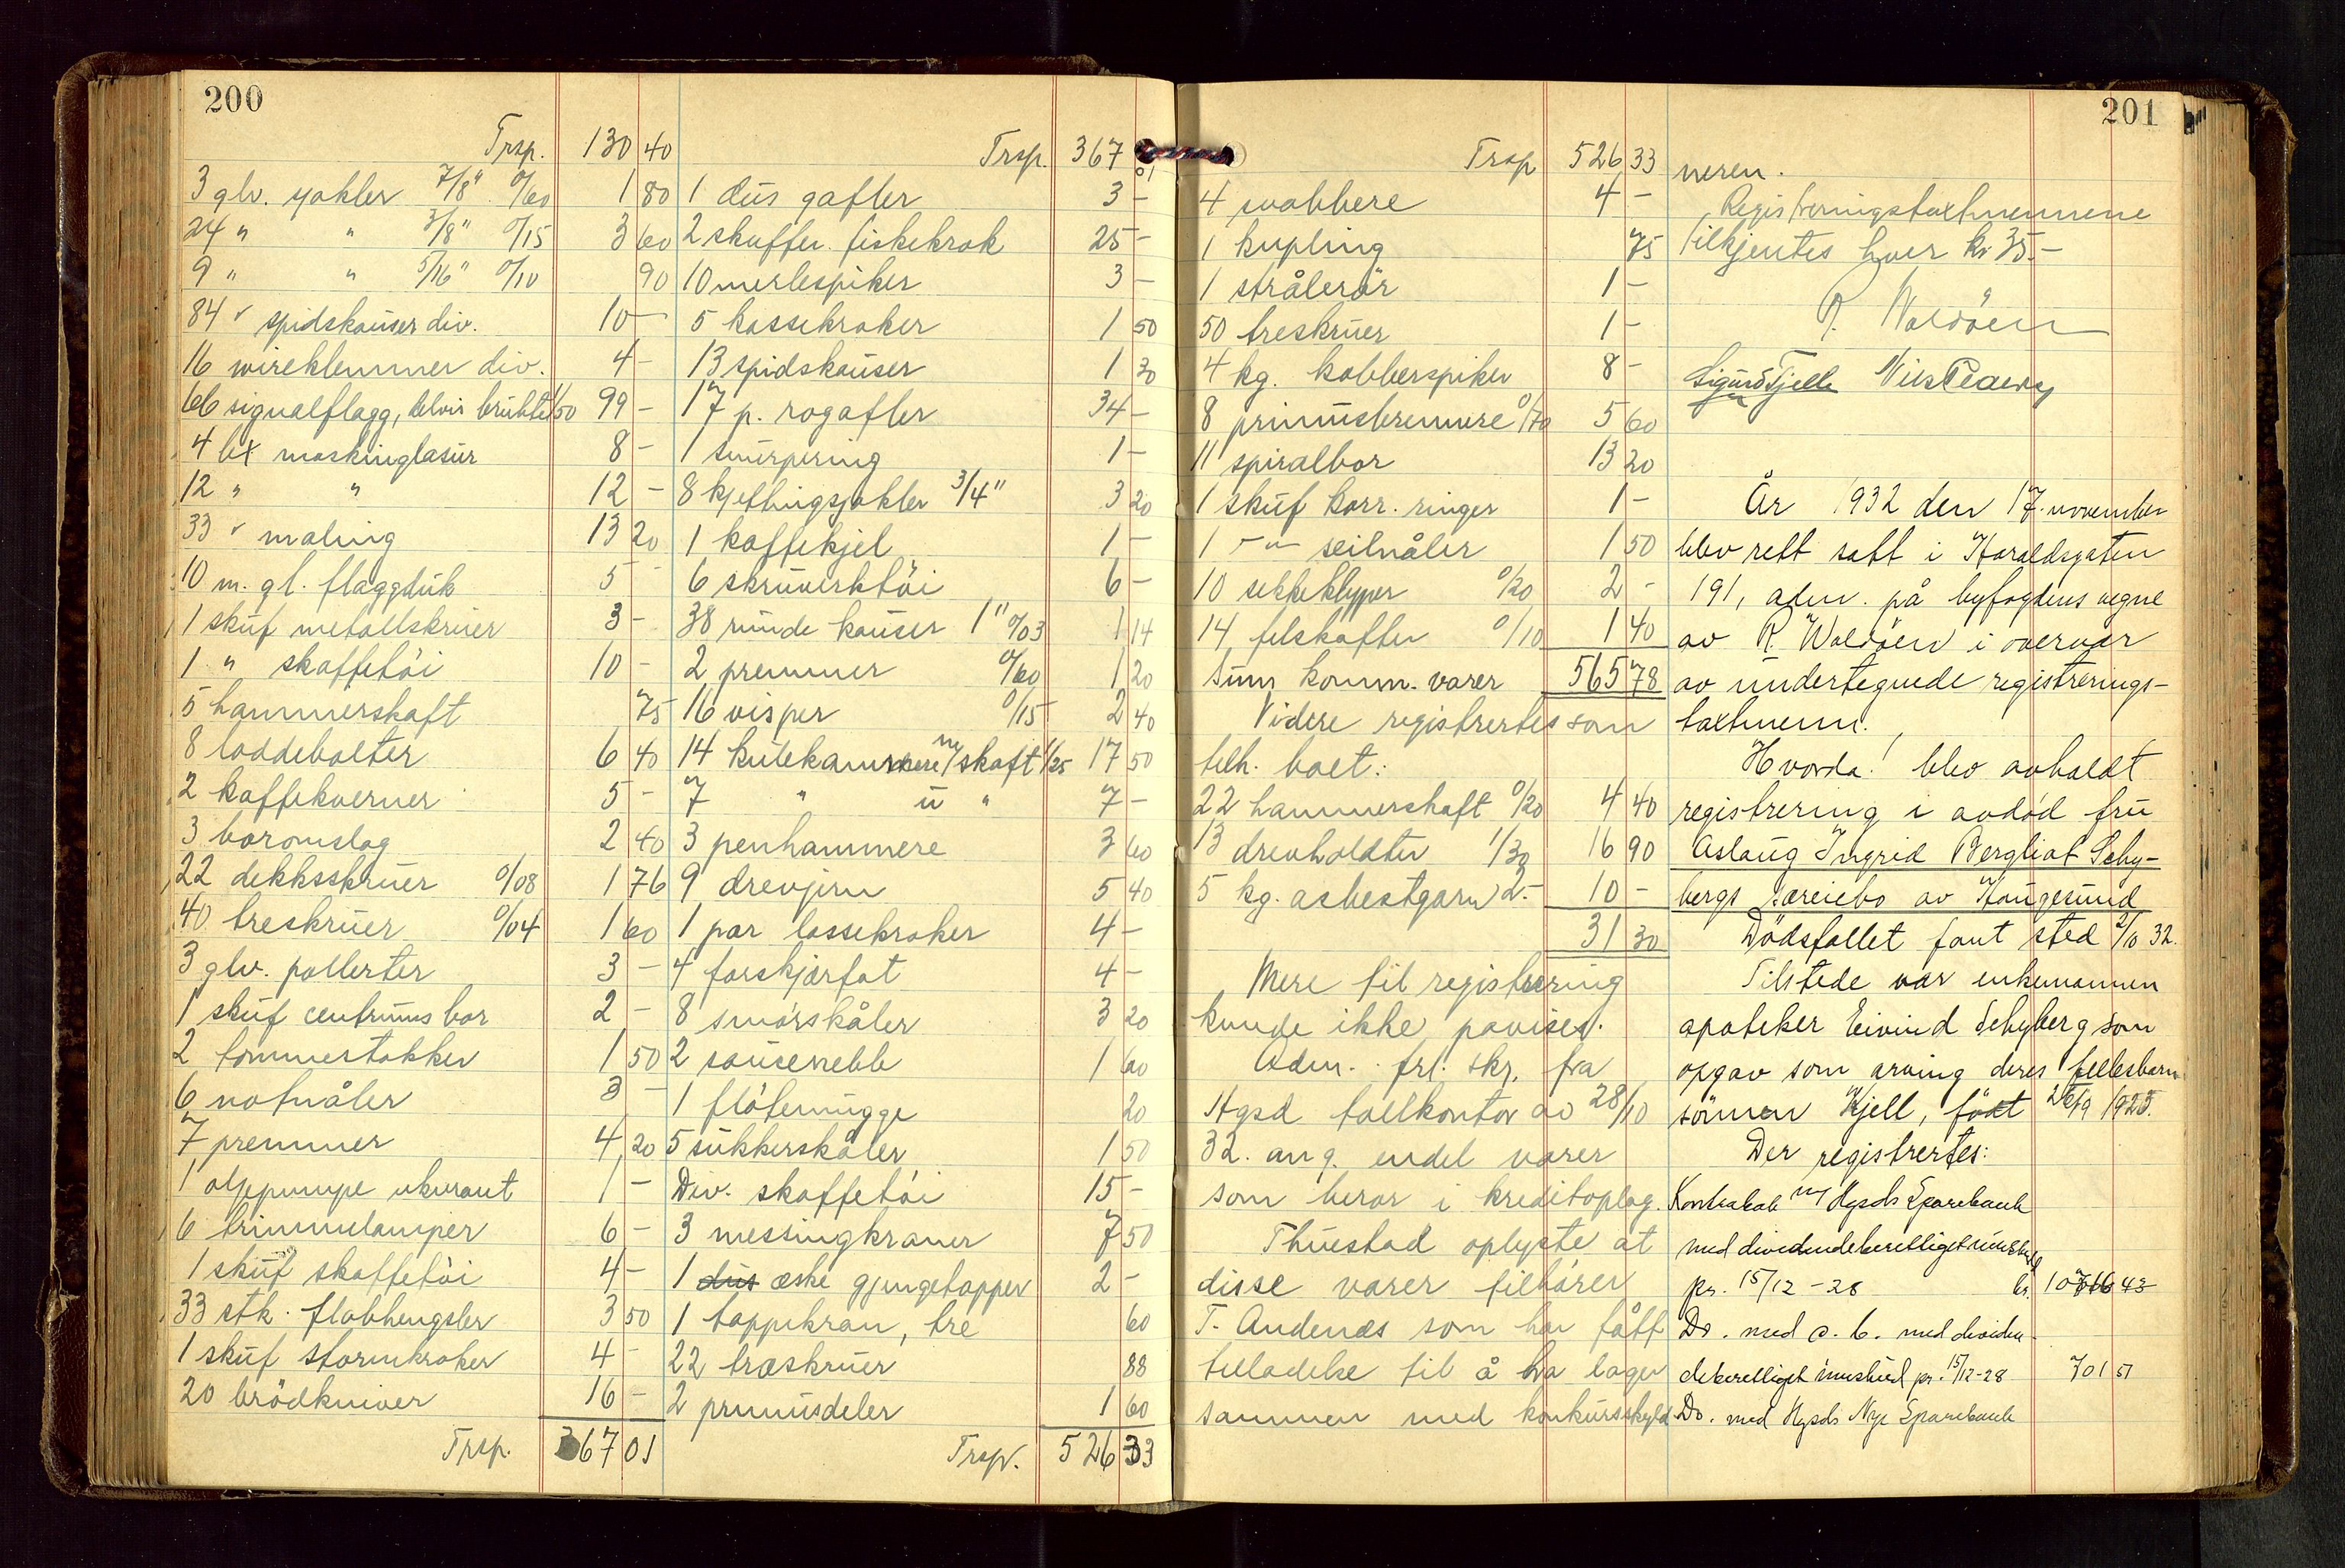 200
Trsp. 130 40
3 glv. sjakler 7/8" 0/60 1 80
24 " " 3/8" 0/15 3 60
9 " " 5/16" 0/10 90
84 " spidskauser div. 10 -
16 wireklemmer div. 4 -
66 signalflagg, delvis brukte 1/50 99 -
4 bx maskinglasur 8 -
12 " " 12 -
33 " maling 13 20
10 m. gl. flaggduk 5 -
1 skuf metallskruer 3 -
1 " skaffetöi 10 -
5 hammerskaft 75
8 loddebolter 6 40
2 kaffekverner 5 -
3 boromslag 2 40
22 dekksskruer 0/08 1 76
40 treskruer 0/04 1 60
3 glv. pullerter 3 -
1 skuf centrums bor 2 -
2 tommerstokker 1 50
6 notnåler 3 -
7 premmer 4 20
1 oljepumpe ukurant 1 -
6 trimmelamper 6 -
1 skuf skaffetöi 4 -
33 stk. flabhengsler 3 50
1 skuf stormkroker 4 -
20 brödkniver 16 -
Trsp. 367 01
Trsp. 367 01
1 dus gafler 3 -
2 skuffer fiskekrok 25 -
10 merlespiker 3 -
5 kassekroker 1 50
13 spidskauser 1 30
17 p. rogafler 34 -
1 snurpering 1 -
8 kjettingsjakler 3/4" 3 20
1 kaffekjel 1 -
6 skruverktöi 6 -
38 runde kauser 1" 0/03 1 14
2 premmer 0/60 1 20
16 visper 0/15 2 40
14 kulehammere m/skaft 1/25 17 50
7 " u " 7 -
3 penhammere 3 60
9 drevjern 5 40
1 par lossekroker 4 -
4 forskjærfat 4 -
8 smörskåler 3 20
2 sausenebb 1 60
1 flötemugge 20
5 sukkerskåler 1 50
Div. skaffetöi 15 -
3 messingkraner 7 50
1 dus æske gjengetapper 2 -
1 tappekran, tre 60
22 træskruer 88
2 primusdeler 1 60
Trsp. 526 33
Trsp 526 33
4 svabbere 4 -
1 kupling 75
1 strålerör 1 -
50 treskruer 1 -
4 kg. kobberspiker 8 -
8 primusbrennere 0/70 5 60
11 spiralbor 13 20
1 skuf korr. ringer 1 -
1 -"- seilnåler 1 50
10 sekkeklyper 0/20 2 -
14 filskafter 0/10 1 40
Sum komm. varer 565 78
Videre registrertes som
tilh. boet:
22 hammerskaft 0/20 4 40
13 drevholdter 1/30 16 90
5 kg. asbestgarn 2.- 10 -
31 30
Mere til registrering
kunde ikke påvises.
Adm. frl. skr. fra
Hgsd tollkontor av 28/10
32. ang. endel varer
som beror i kreditoplag.
Thuestad oplyste at
disse varer tilhörer
T. Andenæs som har fått
tilladelse til å ha lager
sammen med konkursskyld
201
neren.
Registreringstakstmennene
tilkjentes hver kr 35.-
R. Waldöen
Sigurd Fjelle
År 1932 den 17. november
blev rett satt i Haraldsgaten
191, adm. på byfogdens vegne
av R. Waldöen i overvær
av undertegnede registrerings-
takstmenn.
Hvorda! blev avholdt
registrering i avdöd fru
Aslaug Ingrid Bergliot Schy-
bergs særeiebo av Haugesund
Dödsfallet fant sted 2/10 32.
Tilstede var enkemannen
apoteker Eivind Schyberg som
opgav som arving deres fellesbarn
sönnen Kjell, född 26/9 1925.
Der registrertes:
Kontrabok m/ Hgsds Sparebank
med dividendeberettiget innskudd
pr. 15/12 - 28 kr. 10716 43
Do. med a. b. med dividen-
deberettiget innskud pr. 15/12-28 701 51
Do. med Hgsds Nye Sparebank